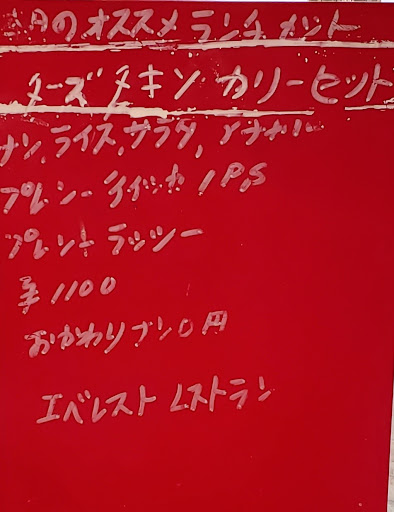 のオススメランチ
チーズチキンカリーセット
ナン,ライス,サラダ,アチャール
プレーンチィッカ 1P,S
プレーンラッシー
¥1100
おかわりナン0円
エベレストレストラン